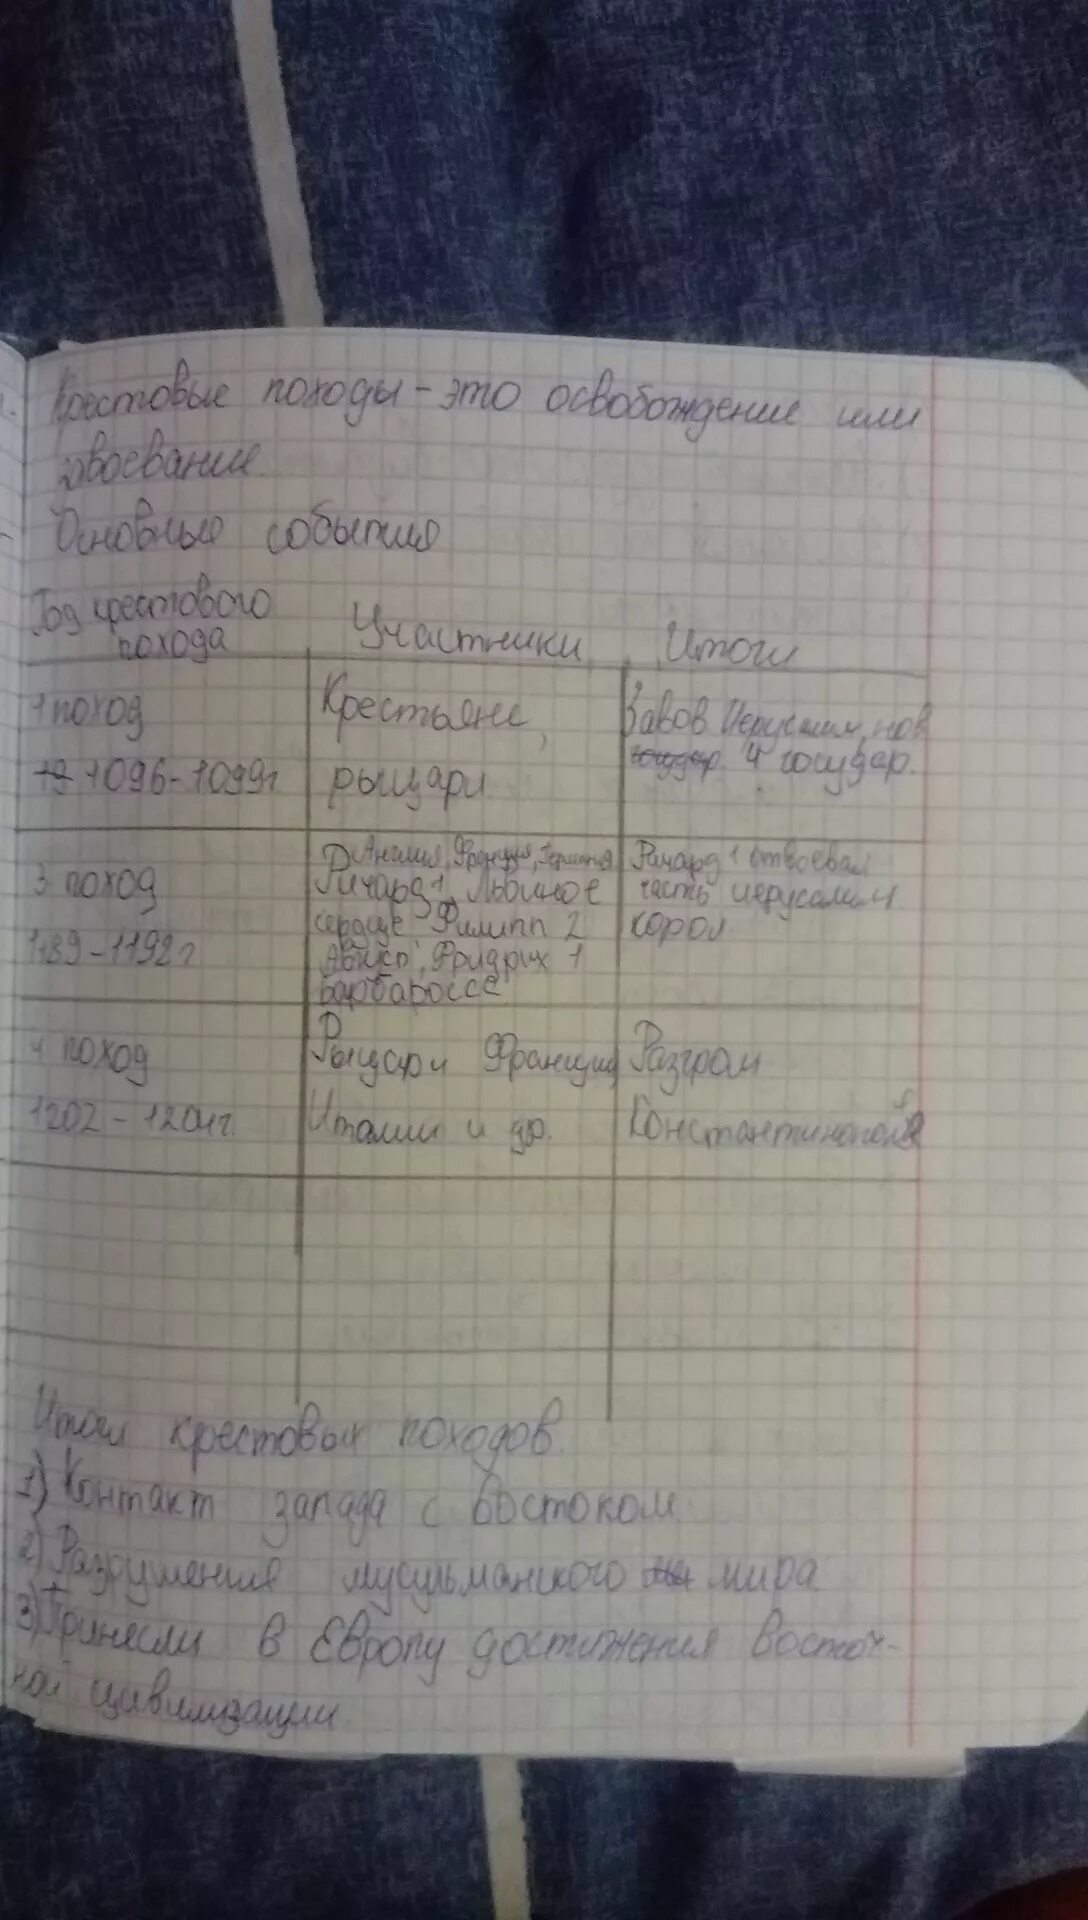 Крестовые походы - это освобождение или
завоевание.
Основные события
Год крестового похода
Участники
Итоги
1 поход
1096-1099г
Крестьяне,
рыцари.
Завов Иерусалим, нов
4 государ.
3 поход
1189-1192г
Англия, Франция, Германия
Ричард 1 Львиное
сердце Филипп 2
Август, Фридрих 1
Барбаросса
Ричард 1 отвоевал
часть иерусалим
корол
4 поход
1202-1204г.
Рыцари Франции
Италии и др.
Разгром
Константинополя
Итоги крестовых походов.
1) Контакт запада с востоком.
2) Разрушения мусульманского мира
3) Принесли в Европу достижения Восточ-
ной цивилизации.